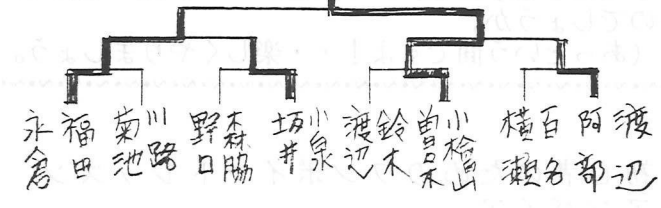 永倉
福田
菊池
川路
野口
森脇
坂井
小泉
渡辺
鈴木
曽木
小桧山
横瀬
百名
阿部
渡辺